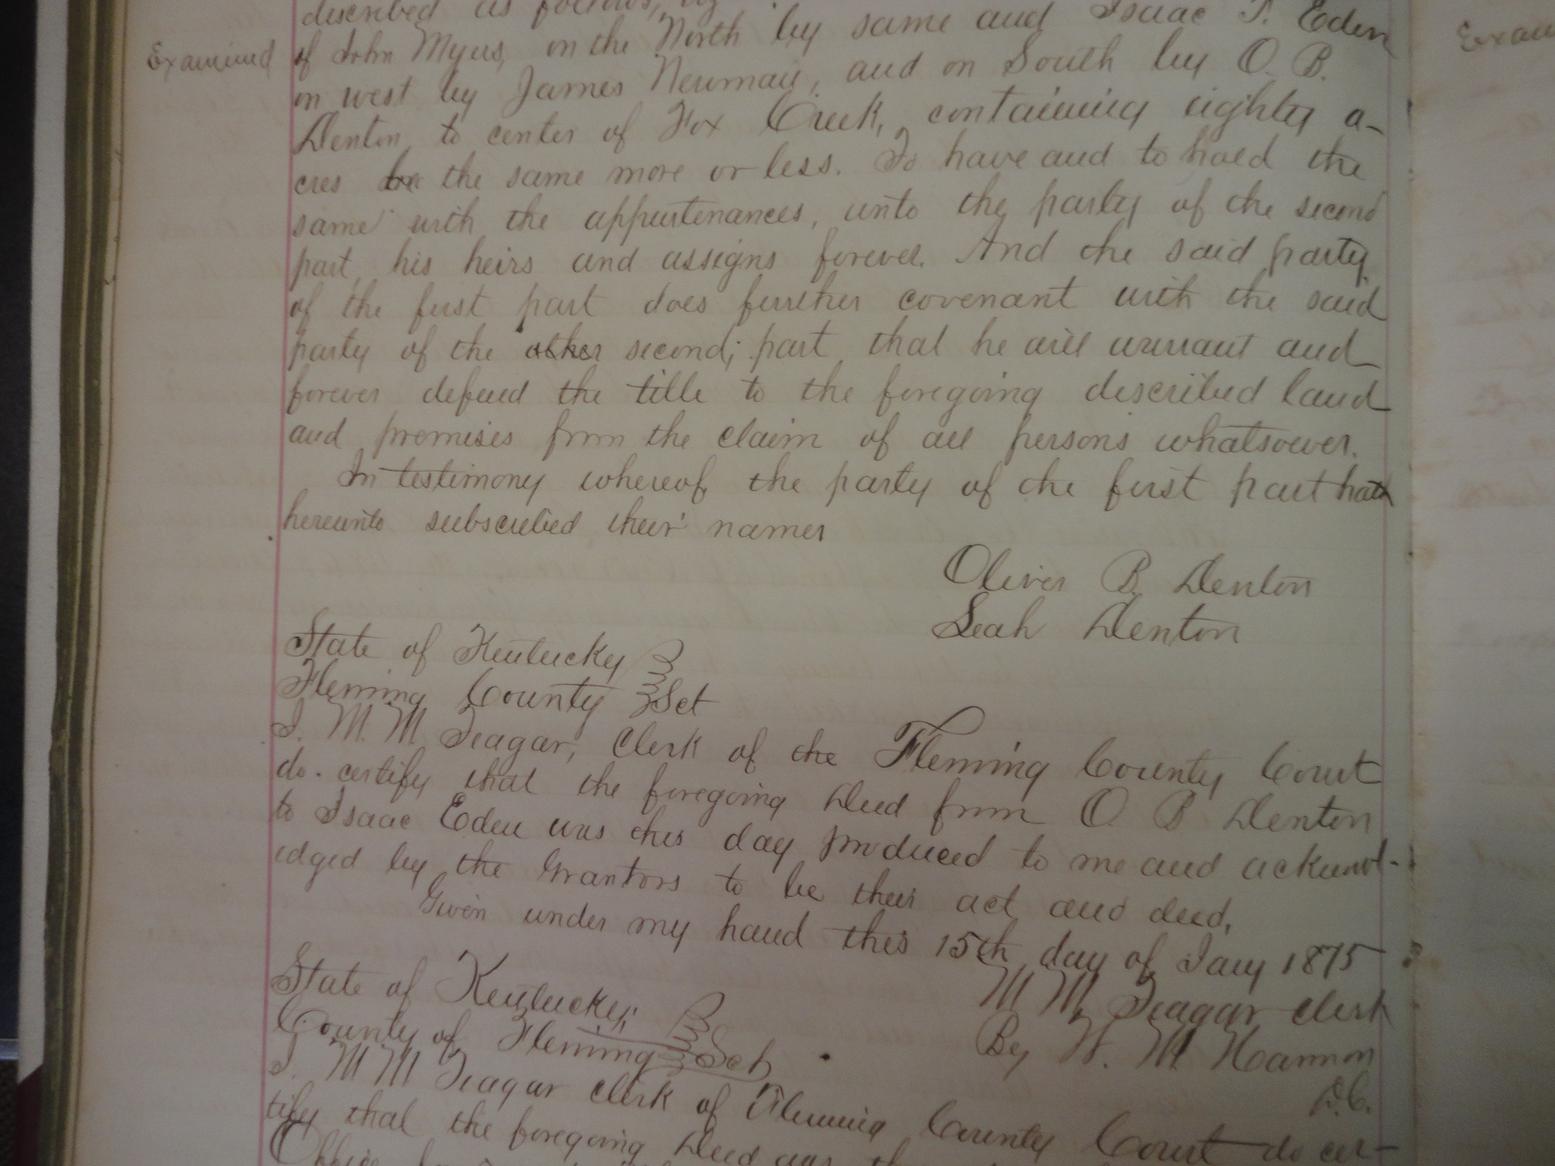 described as follows, by
Examined of John Myers, on the North by same and Isaac T. Eden
on west by James Newman, and on South by O. B.
Denton, to center of Fox Creek, containing eighty a-
cres be the same more or less. To have and to hold the
same with the appurtenances, unto the party of the second
part, his heirs and assigns forever. And the said party
of the first part does further covenant with the said
party of the other second; part, that he will warrant and
forever defend the title to the foregoing described land
and premises from the claim of all persons whatsoever.
In testimony whereof, the party of the first part hath
hereunto subscribed their names
Oliver B. Denton
Leah Denton
State of Kentucky
Fleming County Sct
I. M. M. Teagar, Clerk of the Fleming County Court
do. certify that the foregoing Deed from O B Denton
to Isaac Eden was this day produced to me and acknowl-
edged by the Grantors to be their act and deed,
Given under my hand this 15th day of Jany 1875
M M. Teagar clerk
By W. M. Hannon
D.C.
State of Kentucky,
County of Fleming Sct
I. M M Teagar clerk of Fleming County Court do cer-
tify that the foregoing Deed was
Office
Exam